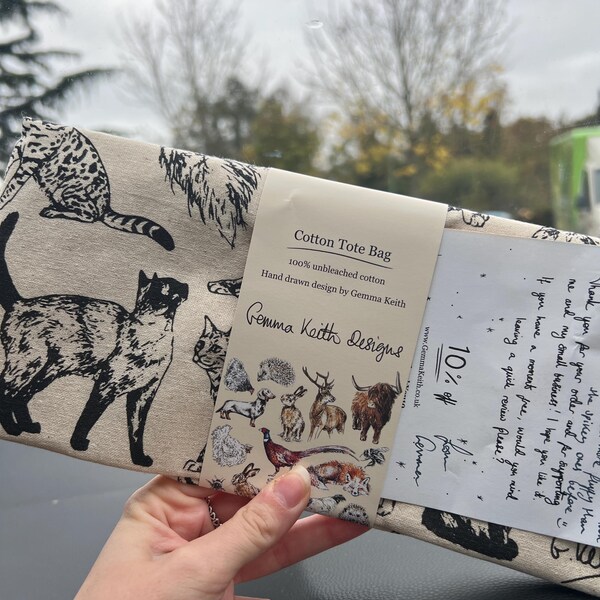 Cotton Tote Bag
100% unbleached cotton
Hand drawn design by Gemma Keith
Gemma Keith Designs
www.GemmaKeith.co.uk
10% off
Thank you for your order and for supporting
me and my small business! I hope you like it.
If you have a moment free would you mind
leaving a quick review please?
Love
Gemma